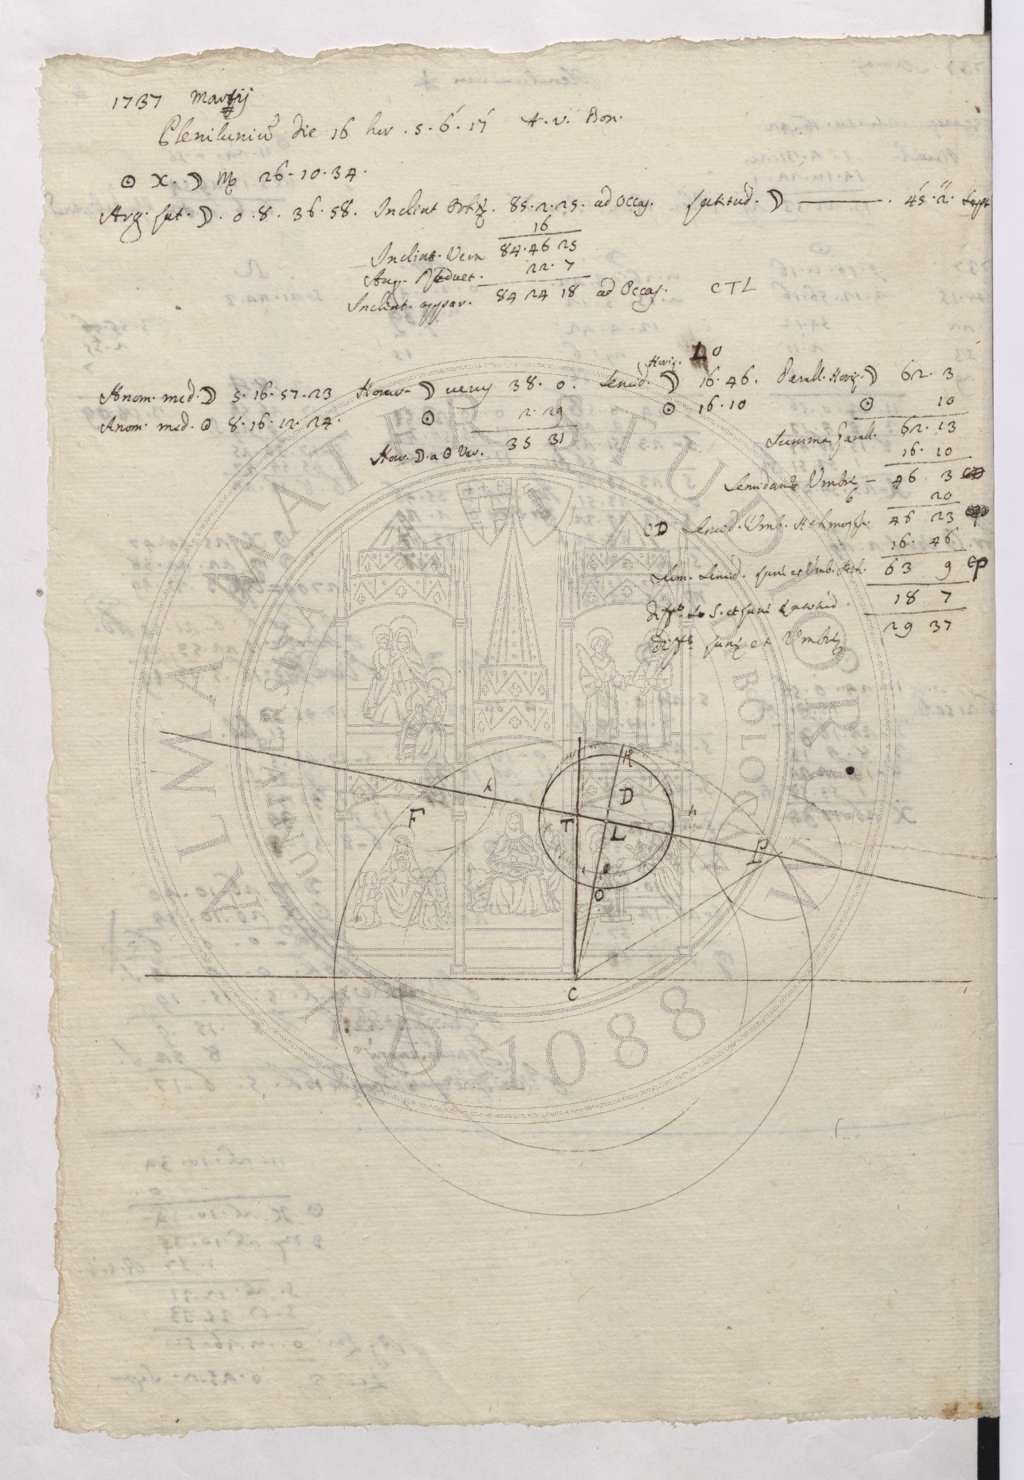 1737 Martij
Plenilunium die 16 hor. 5. 6. 17 t. v. Bon.
☉ X. ☽ ♍ 26. 10. 34.
Arg. Lat. ☽. 0. 8. 36. 58. Inclint Orbit. 85. 2. 25. ad Occas. Latitud. ☽ ——— 45. 2. Sept
16
Inclint. Vera 84. 46 25
Ang. 22. 7
Inclint. appar. 84 24 18 ad Occas. CTL
Anom. med. ☽ 5. 16. 57. 23 Horar. ☽ verus 38. 0. Semid. Horiz. ☽ 16. 46. LO Parall. Horiz. ☽ 62. 3
Anom. med. ☉ 8. 16. 12. 24. ☉ 2. 29 ☉ 16. 10 ☉ 10
Hor. ☽ a ☉ Ver. 35 31 Summa Parall. 62. 13
16. 10
Semidiam. Umbræ — 46. 3
20
CD Semid. Umb. 46 23
16. 46
Sem. Semid. Lunæ et Umb. 63 9 CP
18 7
Diffa Lunæ et Umbræ 29 37
R
A
D
A
F
T
L
P
O
C
ALMA MATER STUDIORUM
UNIVERSITAS BOLOGNA
A.D. 1088